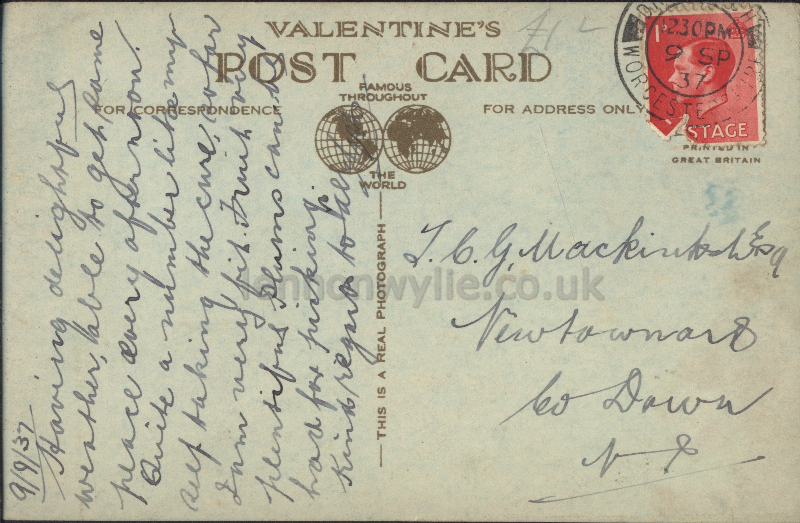 VALENTINE'S
POST CARD
FAMOUS
THROUGHOUT
THE
WORLD
FOR CORRESPONDENCE
FOR ADDRESS ONLY
PRINTED IN
GREAT BRITAIN
THIS IS A REAL PHOTOGRAPH
£1
2.30 PM
9 SP
37
WORCESTE
POSTAGE
9/9/37
Having delightful
weather, able to get some
place every afternoon.
Quite a number like my
self taking the cure, so far
I am very fit. Fruit very
plentiful Plums can be
had for picking.
Kind regards to all
T. C. G. Mackintosh Esq
Newtownards
Co Down
N I
lennonwylie.co.uk